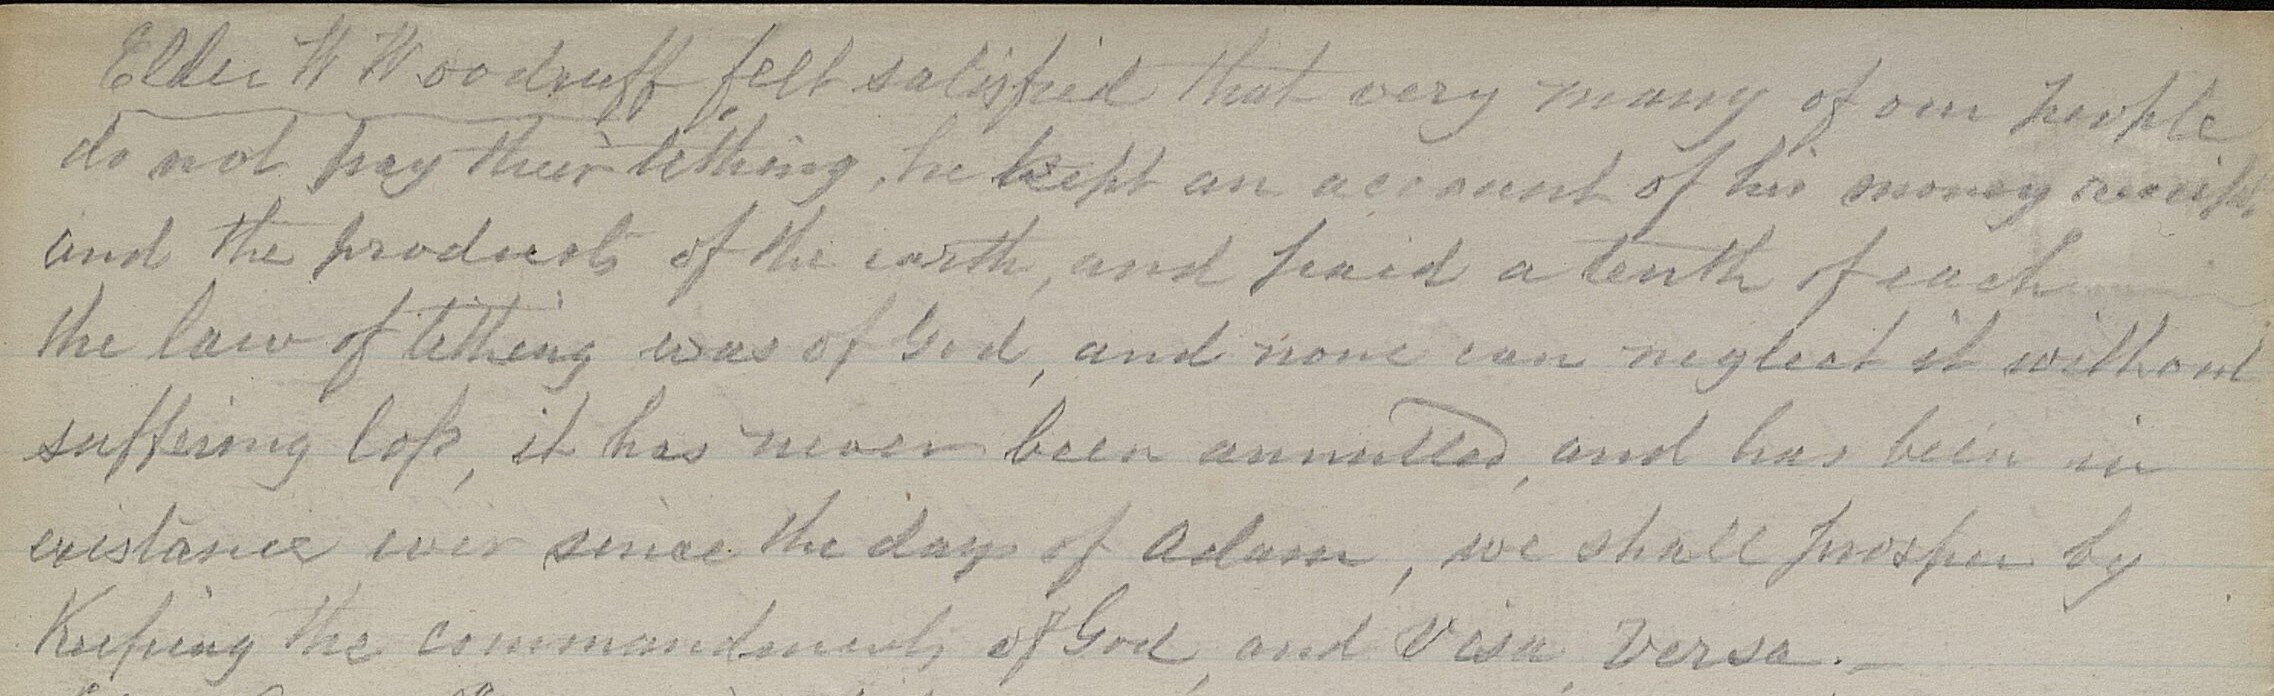 Elder W Woodruff felt satisfied that very many of our people
do not pay their tithing, he kept an account of his money receipts
and the products of the earth, and paid a tenth of each
the law of tithing was of God, and none can neglect it without
suffering loss, it has never been annulled, and has been in
existance ever since the days of Adam, we shall prosper by
Keeping the commandments of God, and Visa Versa.-